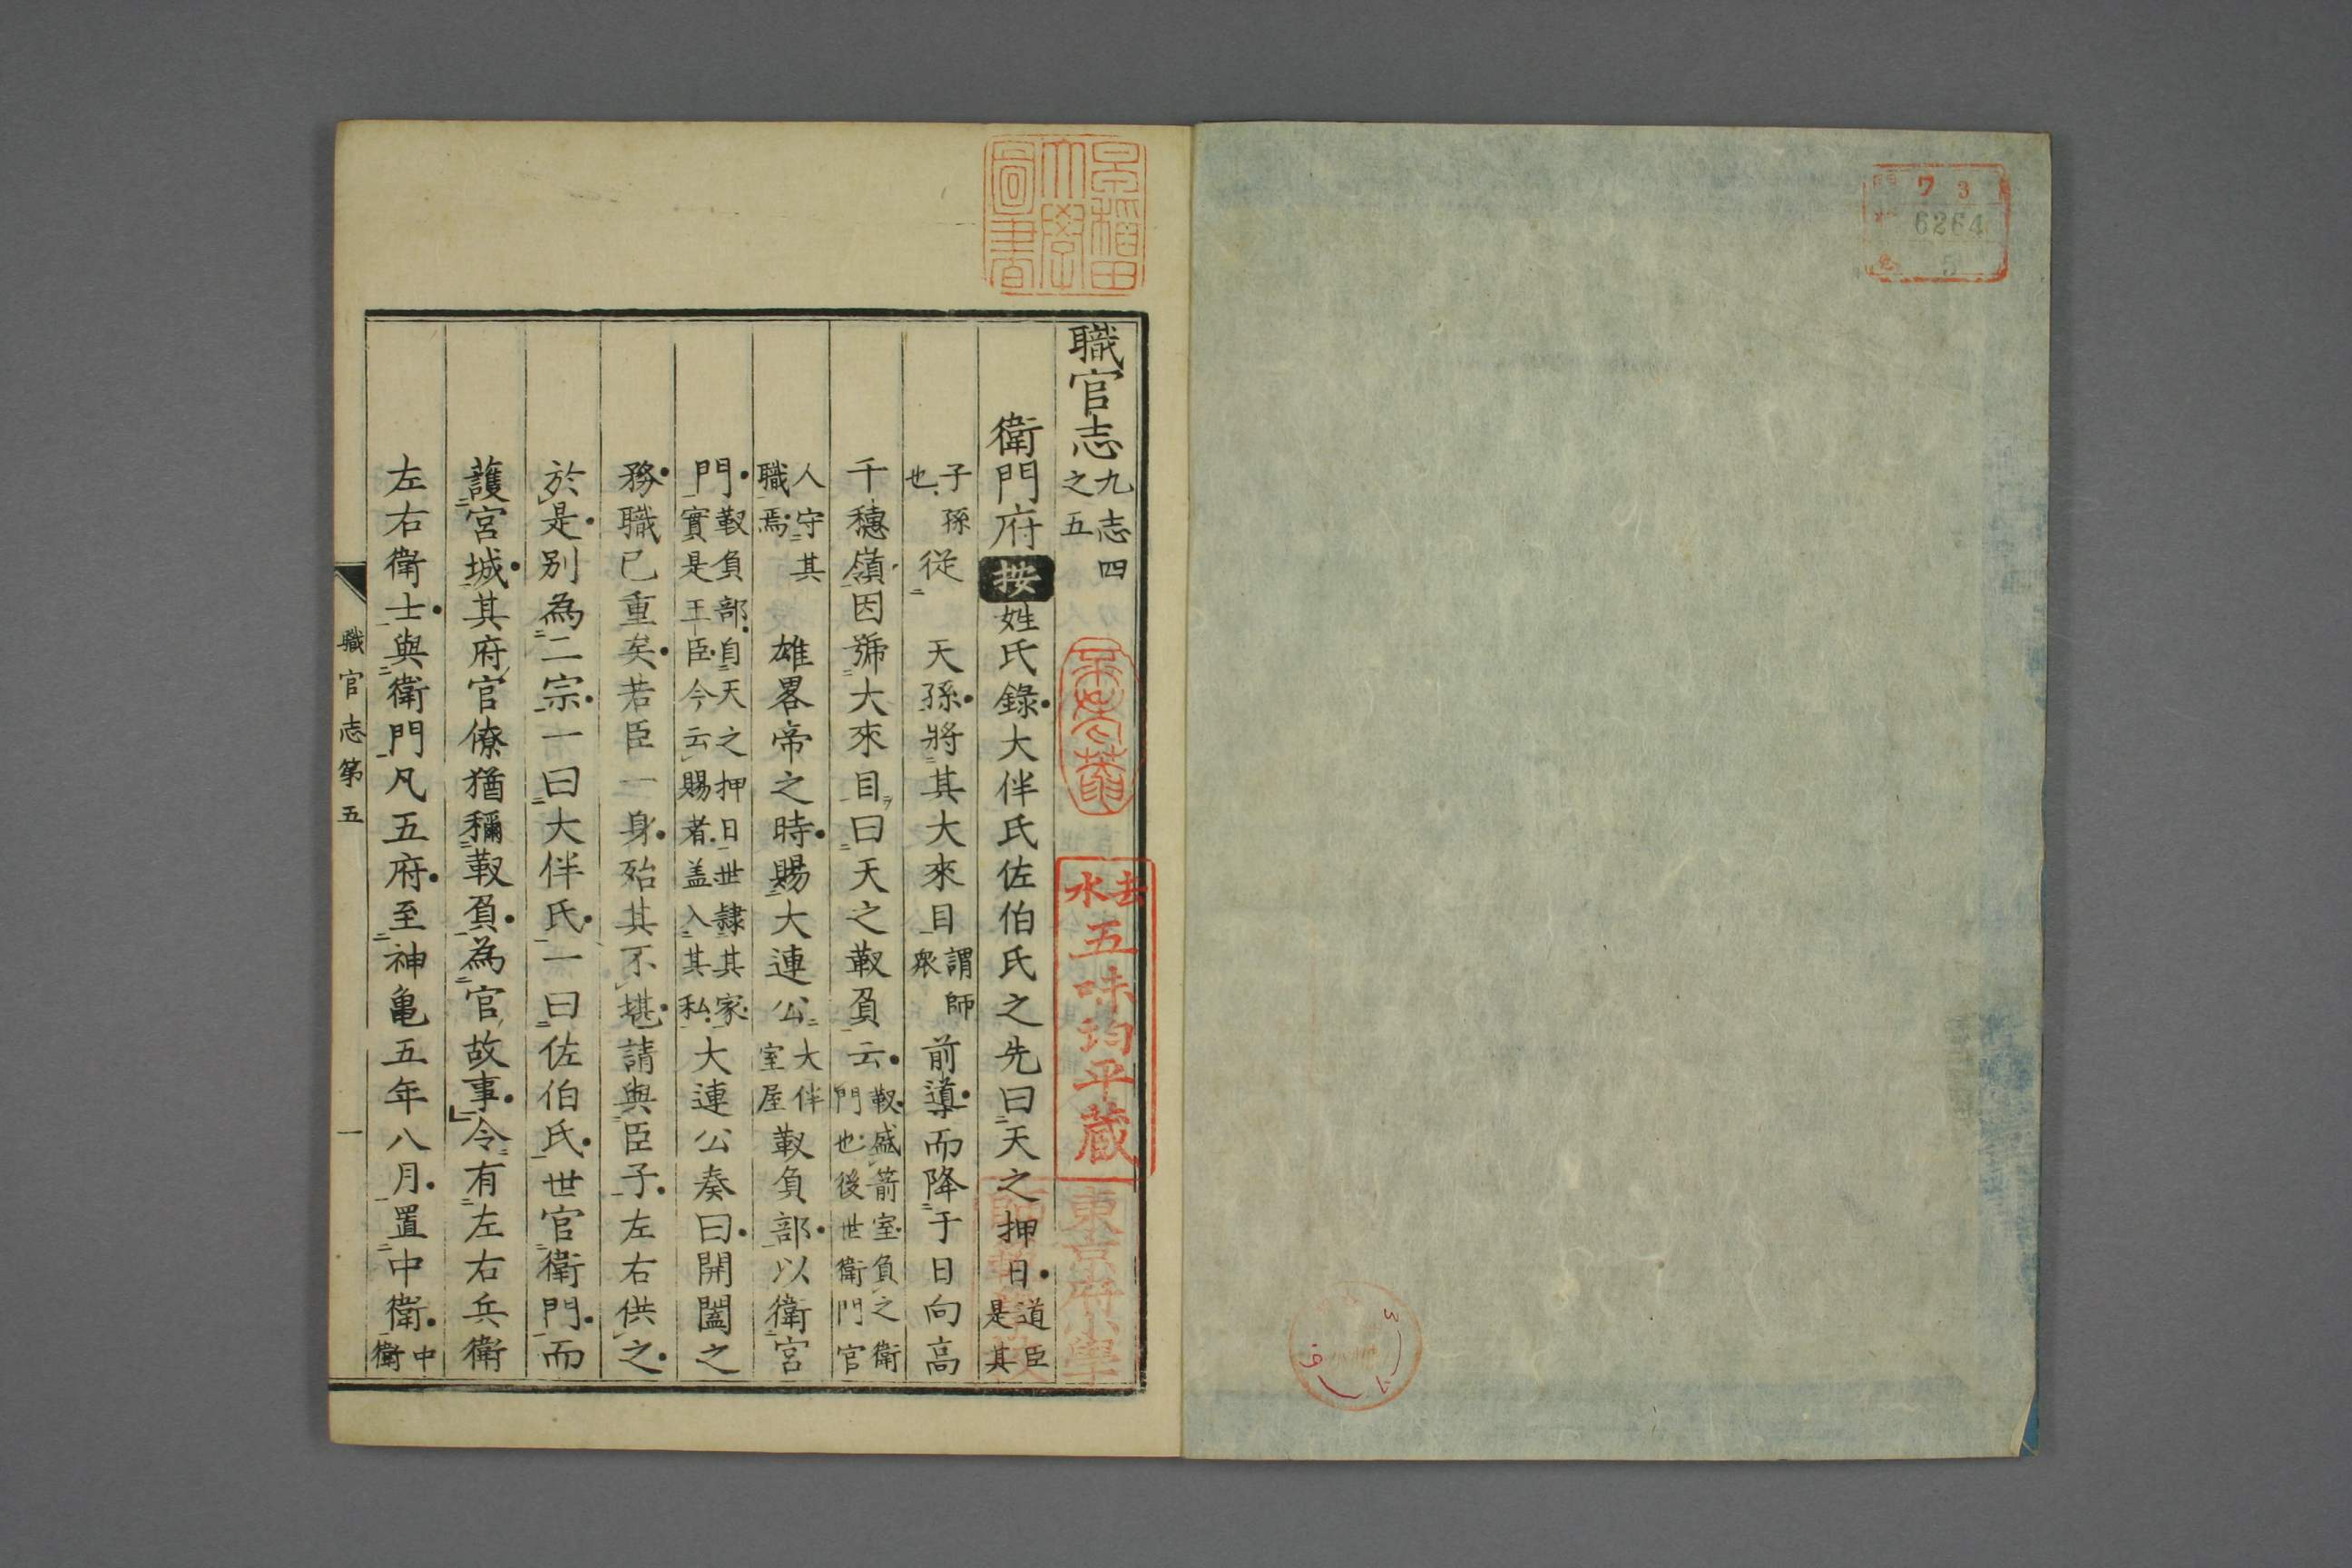 ワ 3
6264
5
早稲田大學圖書
職官志 九志四之五
衛門府 按 姓氏錄大伴氏佐伯氏之先曰天之押日 道臣是其
子孫也 從天孫將其大來目 謂師衆 前導而降于日向高
千穗嶺因號大來目曰天之靫負云 靫盛箭室負之衛門也後世衛門官
人守其職焉 雄畧帝之時賜大連公 大伴室屋 靫負部以衛宮
門 靫負部自天之押日世隷其家實是王臣今云賜者盖入其私 大連公奏曰開闔之
務職已重矣若臣一身殆其不堪請與臣子左右供之
於是別為二宗一曰大伴氏一曰佐伯氏世官衛門而
護宮城其府官僚猶稱靫負為官故事令有左右兵衛
左右衛士與衛門凡五府至神亀五年八月置中衛 中衛
職官志第五
一
去水
五味均平蔵
東京府小學
師範學校